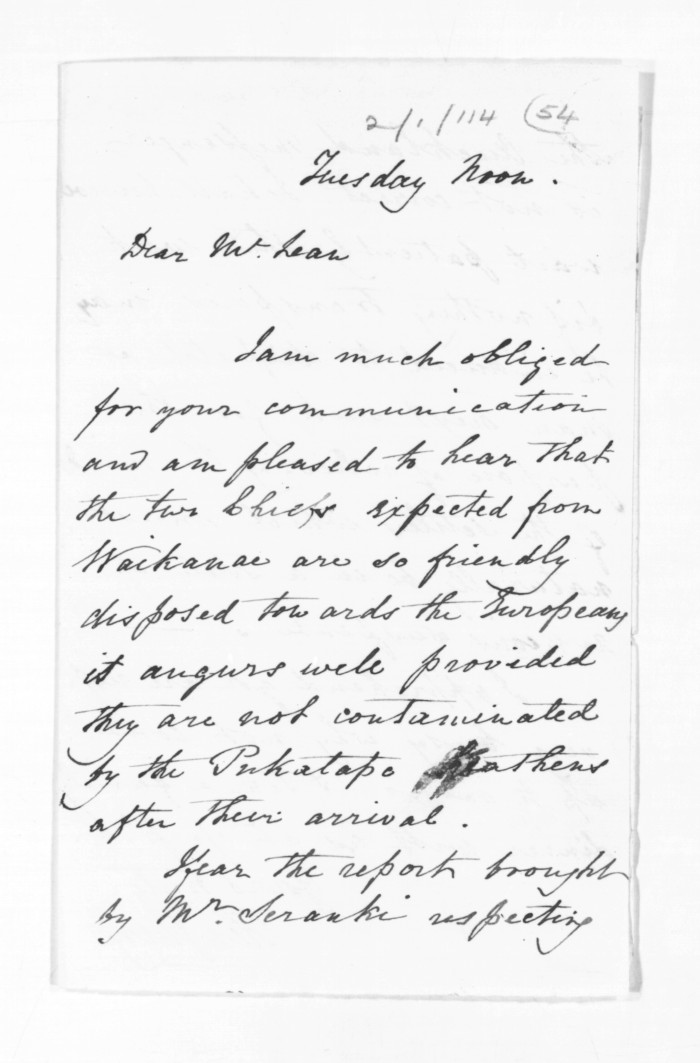 2/1/114 (54
Tuesday Noon.
Dear Mr. Lean
I am much obliged
for your communication
and am pleased to hear that
the two Chiefs expected from
Waikanae are so friendly
disposed towards the Europeans
it augurs well provided
they are not contaminated
by the Pukatapo heathens
after their arrival.
I fear the report brought
by Mr. Seranki respecting